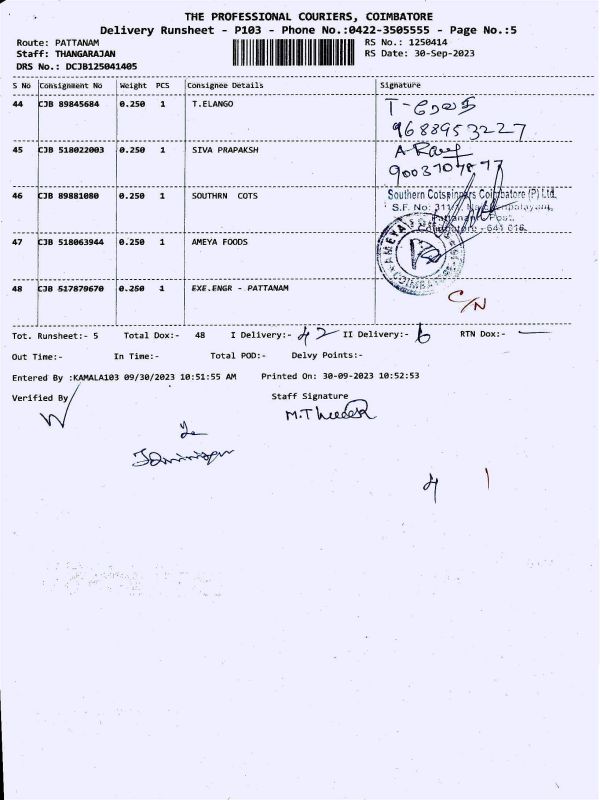 THE PROFESSIONAL COURIERS, COIMBATORE
Delivery Runsheet - P103 - Phone No.:0422-3505555 - Page No.:5
Route: PATTANAM RS No.: 1250414
Staff: THANGARAJAN RS Date: 30-Sep-2023
DRS No.: DCJB125041405
S No Consignment No Weight PCS Consignee Details Signature
44 CJB 89845684 0.250 1 T.ELANGO T-
9688953227
45 CJB 518022003 0.250 1 SIVA PRAPAKSH
46 CJB 89881080 0.250 1 SOUTHRN COTS Southern Cotspinners Coimbatore (P) Ltd.
S.F. No:
Pattanam Post,
Coimbatore - 641 016.
47 CJB 518063944 0.250 1 AMEYA FOODS AMEYA
48 CJB 517879670 0.250 1 EXE.ENGR - PATTANAM C/N
Tot. Runsheet:- 5 Total Dox:- 48 I Delivery:- 42 II Delivery:- 6 RTN Dox:- —
Out Time:- In Time:- Total POD:- Delvy Points:-
Entered By :KAMALA103 09/30/2023 10:51:55 AM Printed On: 30-09-2023 10:52:53
Verified By Staff Signature